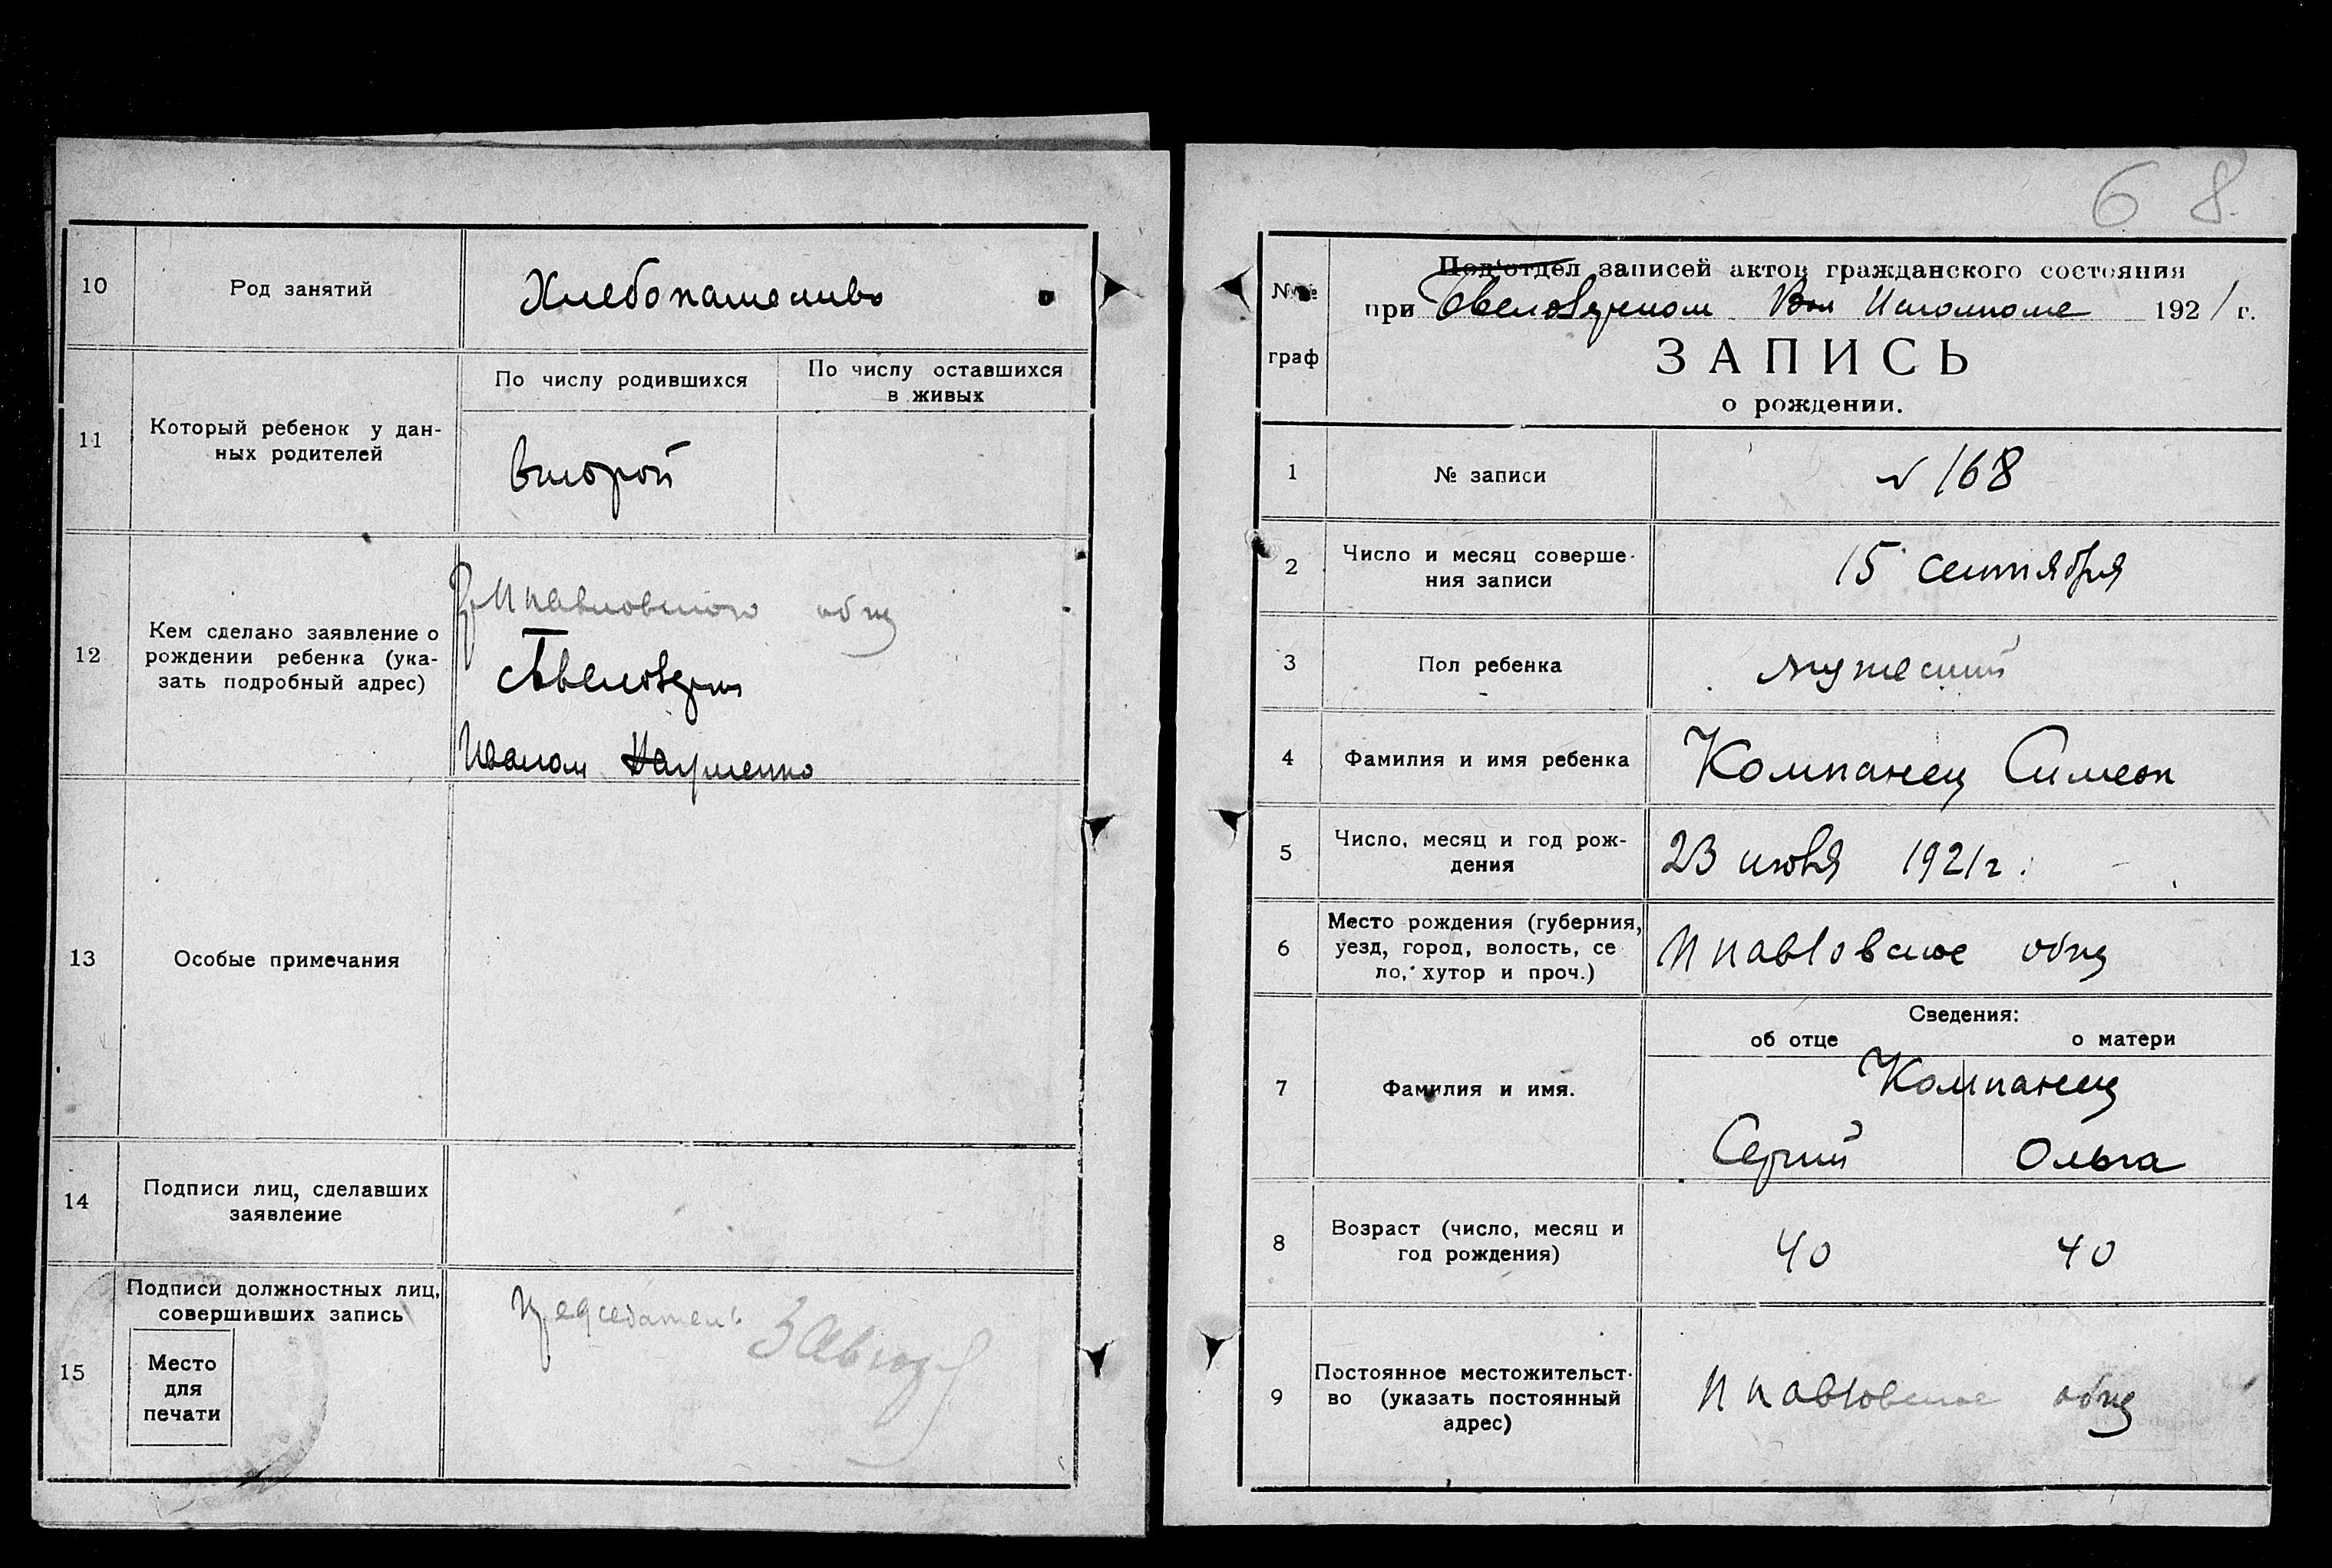 10
Род занятий
Хлебопашество
11
Который ребенок у дан-
ных родителей
По числу родившихся
По числу оставшихся
в живых
второй
12
Кем сделано заявление о
рождении ребенка (ука-
зать подробный адрес)
общ
Иваном Науменко
13
Особые примечания
14
Подписи лиц, сделавших
заявление
15
Подписи должностных лиц,
совершивших запись
Место
для
печати
Председатель
68
№№
граф
Под'отдел записей актов гражданского состояния
при Вол Исполкоме 1921 г.
ЗАПИСЬ
о рождении.
1
№ записи
№ 168
2
Число и месяц соверше-
ния записи
15 сентября
3
Пол ребенка
мужеский
4
Фамилия и имя ребенка
Компанец Симеон
5
Число, месяц и год рож-
дения
23 1921 г.
6
Место рождения (губерния,
уезд, город, волость, се
ло, хутор и проч.)
Н павловское общ
7
Фамилия и имя.
Сведения:
об отце
о матери
Компанец
Сергий
Ольга
8
Возраст (число, месяц и
год рождения)
40
40
9
Постоянное местожительст-
во (указать постоянный
адрес)
Н павловское общ